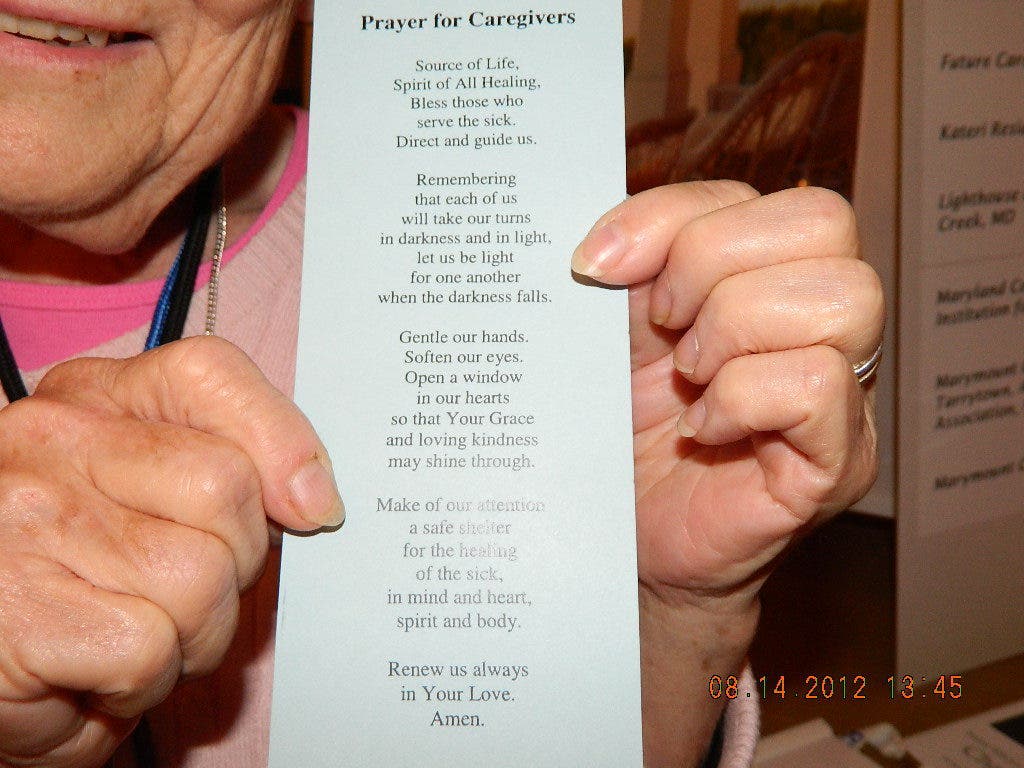 Prayer for Caregivers
Source of Life,
Spirit of All Healing,
Bless those who
serve the sick.
Direct and guide us.
Remembering
that each of us
will take our turns
in darkness and in light,
let us be light
for one another
when the darkness falls.
Gentle our hands.
Soften our eyes.
Open a window
in our hearts
so that Your Grace
and loving kindness
may shine through.
Make of our attention
a safe shelter
for the healing
of the sick,
in mind and heart,
spirit and body.
Renew us always
in Your Love.
Amen.
Future
Kateri
Lighthouse
Creek, MD
Maryland
Institution
Marymount
Tarrytown,
Association,
Marymount
08.14.2012 13:45